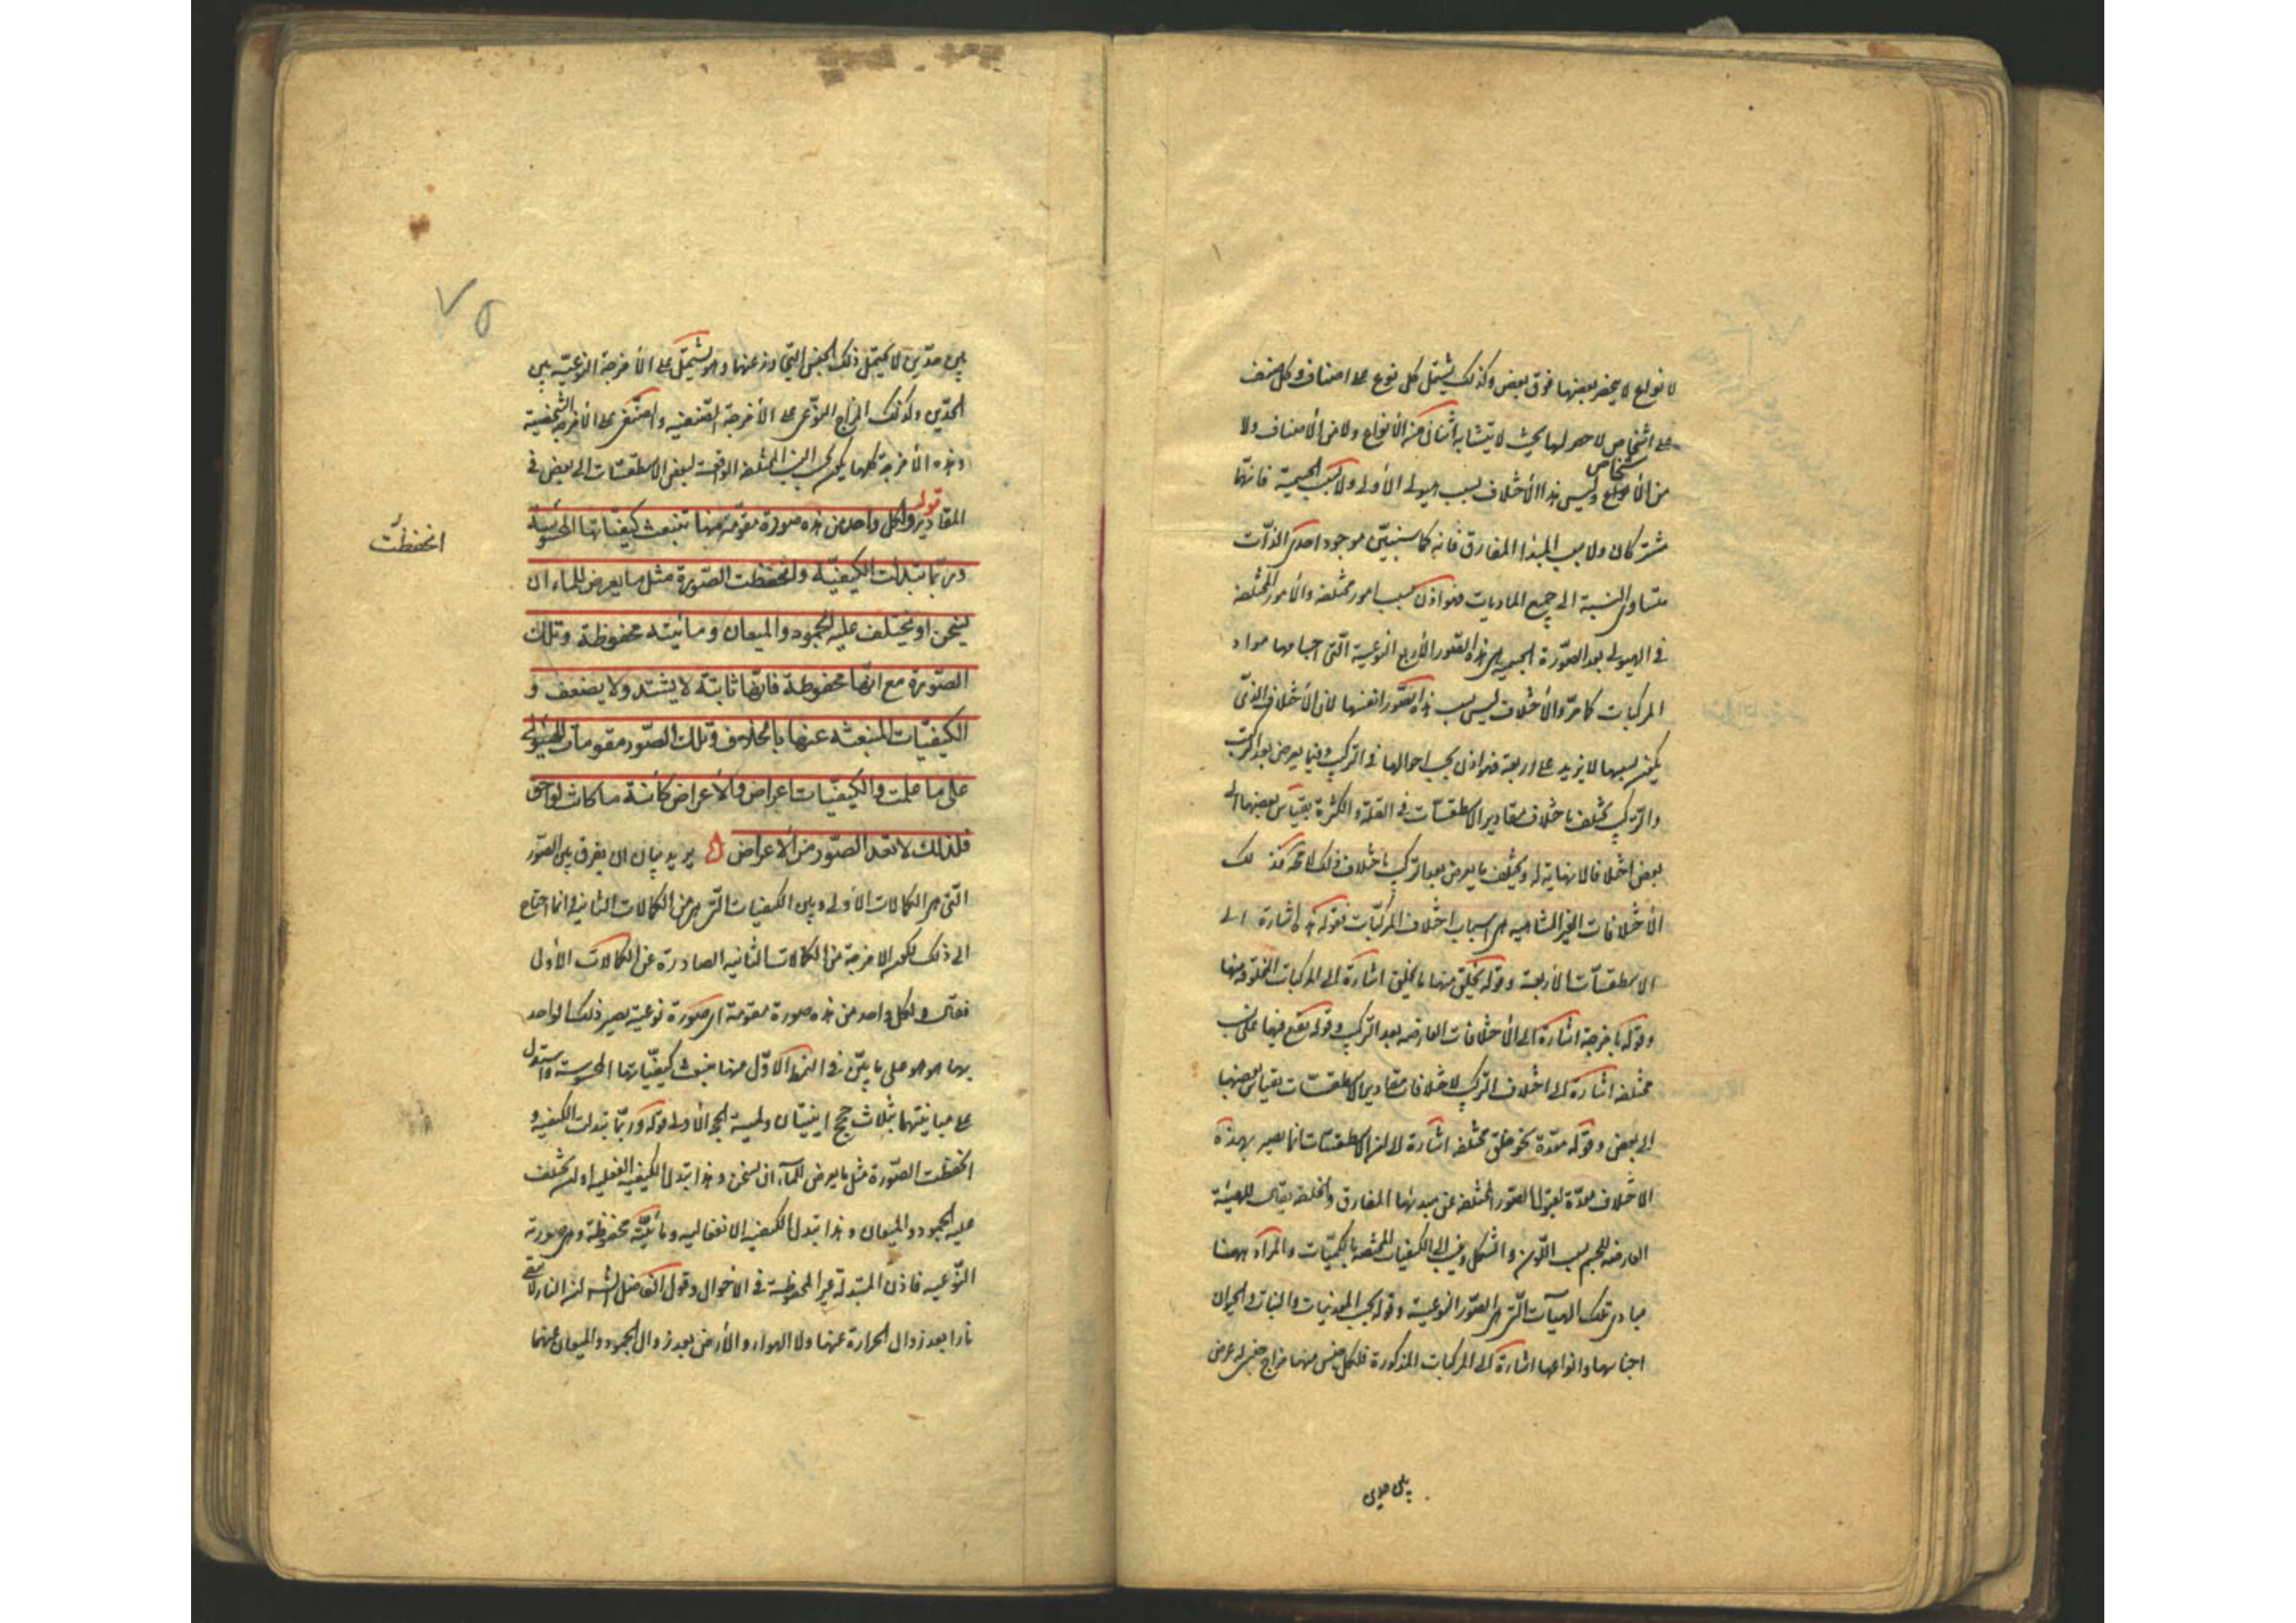 لا نواع لا ينحصر بعضها فوق بعض وكذلك يشتمل كل نوع على اصناف وكل صنف
على اشخاص لا حصر لها بحيث لا يتشابه اثنان من الأنواع ولا من الأصناف ولا
من الأ شخاص وليس هذا الأختلاف بسبب هيولى الأولى ولا بسبب الجسمية فانهما
مشتركان ولا بسبب المبدأ المفارق فانه كما سنبين موجود احدى الذات
متساوى النسبة الى جميع الماديات فهو اذن بسبب امور مختلفة والأمور المختلفة
فى الهيولى بعد الصورة الجسمية هى هذه الصور الأربع النوعية التى اجسامها مواد
المركبات كما مر والأختلاف ليس بسبب هذه الصور انفسها لان الأختلاف الذى
يكون بسببها لا يزيد على اربعة فهو اذن بحسب احوالها فى التركيب وفيما يعرض بعد التركيب
والتركيب يختلف باختلاف مقادير الاسطقسات فى القلة والكثرة بقياس بعضها الى
بعض اختلافا لا نهاية له ويختلف ما يعرض بعد التركيب باختلاف ذلك لا محة فتلك
الأختلافات الغير المتناهية هى اسباب اختلاف المركبات فقوله هذه اشارة الى
الاسطقسات الأربعة وقوله يخلق منها ما يخلق اشارة الى المركبات المخلوقة منها
وقوله بامزجة اشارة الى الأختلافات العارضة بعد التركيب وقوله يقع فيها على نسب
مختلفة اشارة الى اختلاف التركيب لاختلافات مقادير الاسطقسات بقياس بعضها
الى بعض وقوله معدة نحو خلق مختلفه اشارة الى ان الاسطقسات انما يصير بهذه
الاختلاف معدة لقبول الصور المختلفة عن مبدئها المفارق والخلقة يقال للهيئة
العارضة للجسم بسبب اللون والشكل وينسب الى الكيفيات المختصة بالكميات والمراد ههنا
مبادى تلك الهيآت التى هى الصور النوعية وقوله بحسب المعدنيات والنبات والحيوان
اجناسها وانواعها اشارة الى المركبات المذكورة فلكل جنس منها مزاج جنسى له عرض
بين حدين
بين حدين لا يحتمل ذلك الجنس التجاوز عنهما وهو يشتمل على الأمزجة النوعية بين
الحدين وكذلك المزاج النوعى على الأمزجة الصنفية والصنفى على الأمزجة الشخصية
وهذه الأمزجة كلها يكون بحسب النسب المختلفة الواقعة لبعض الاسطقسات الى بعض فى
المقادير قوله ولكل واحد من هذه صورة مقومة منها تنبعث كيفياتها المحسوسة
وربما تبدلت الكيفية وانحفظت الصورة مثل ما يعرض للماء ان
انحفظت
يسخن او يختلف عليه الجمود والميعان ومائيته محفوظة وتلك
الصورة مع انها محفوظة فانها ثابتة لا يشتد ولا يضعف و
الكيفيات المنبعثة عنها بالخلاف وتلك الصور مقومات للهيولى
على ما علمت والكيفيات اعراض والأعراض كائنة ما كانت لواحق
فلذلك لا تعد الصور من الأعراض يريد بيان ان يفرق بين الصور
التى هى الكمالات الأولى وبين الكيفيات التى هى من الكمالات الثانية وانما احتاج
الى ذلك لكون الامزجة من الكمالات الثانية الصادرة عن الكمالات الأولى
فقال ولكل واحد من هذه صورة مقومة اى صورة نوعية يصير ذلك الواحد
بها هو هو على ما بين فى النمط الأول منها تنبعث كيفياتها المحسوسة واستدل
على مباينتهما بثلاث حجج اثنيتان ولمية الحجة الأولى قوله وربما تبدلت الكيفية و
انحفظت الصورة مثل ما يعرض للمآء ان يسخن وهذا تبدل الكيفية الفعلية او ان يختلف
عليه الجمود والميعان وهذا تبدل الكيفية الانفعالية ومائيته محفوظة وهى صورته
النوعية فاذن المتبدلة غير المحفوظة فى الاحوال وقول الفاضل الشارح ان النار لا تبقى
نارا بعد زوال الحرارة عنها ولا الهواء والأرض بعد زوال الجمود والميعان عنهما